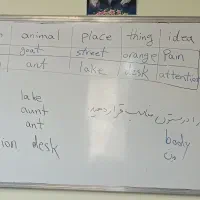 n animal place thing idea
goat street orange Pain
ant lake desk attention
lake
aunt
در ستون مناسب قرار دهید
ant
ion desk body